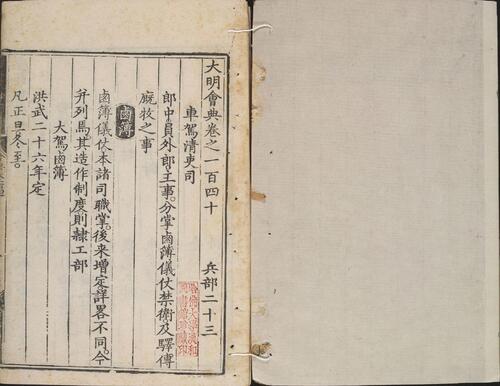 大明會典卷之一百四十
兵部二十三
車駕清吏司
郎中員外郎主事。分掌鹵簿儀仗禁衛及驛傳
廐牧之事
鹵簿
鹵簿儀仗本諸司職掌。後来增定詳畧不同。今
幷列焉。其造作制度則隷工部
大駕鹵簿
洪武二十六年定
凡正旦冬至。